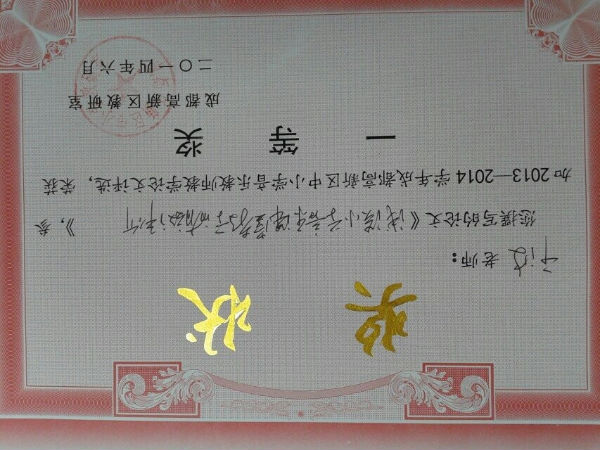 奖状
老师：
您撰写的论文《浅谈小学音乐课堂教学》，参
加2013—2014学年成都高新区中小学音乐教师教学论文评选，荣获
一等奖
成都高新区教研室
二〇一四年六月